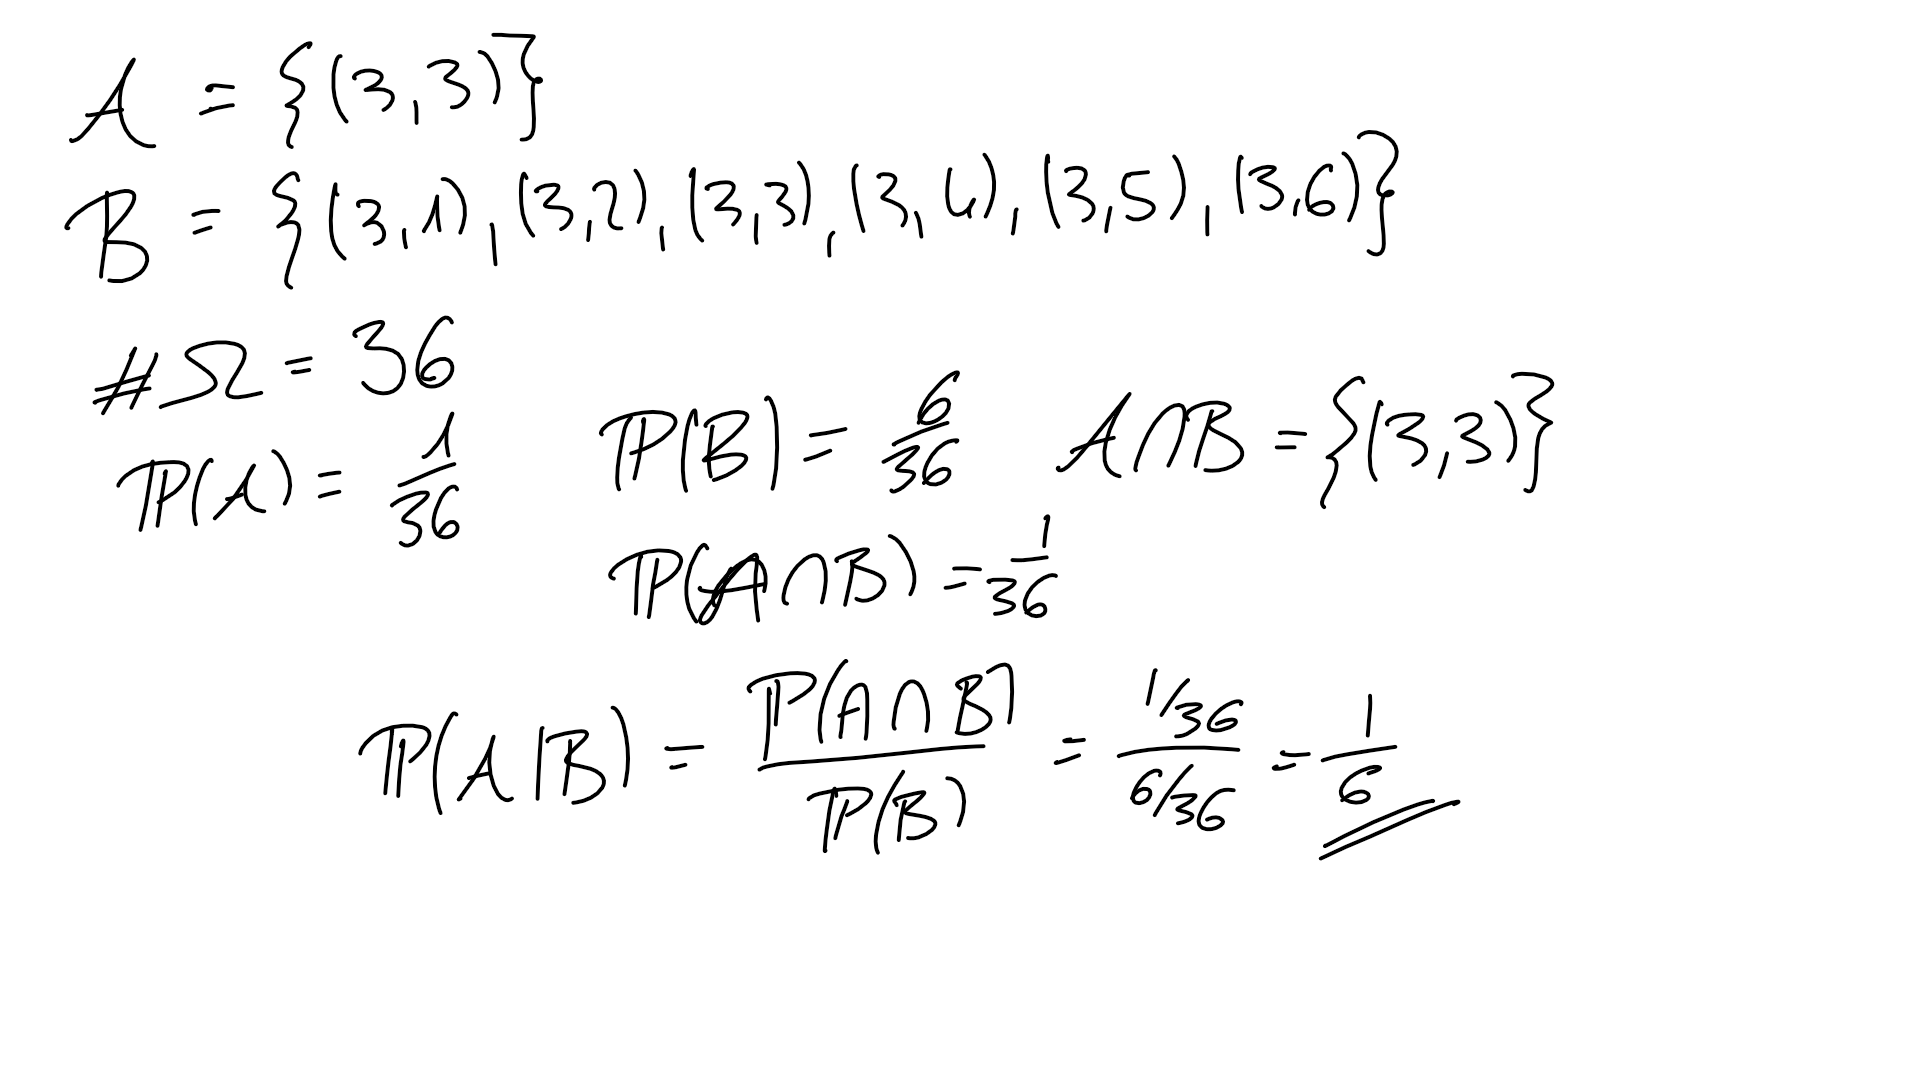 A = {(3,3)}
B = {(3,1), (3,2), (3,3), (3,4), (3,5), (3,6)}
#Ω = 36
ℙ(A) = 1/36 ℙ(B) = 6/36 A∩B = {(3,3)}
ℙ(A∩B) = 1/36
ℙ(A|B) = ℙ(A∩B)/ℙ(B) = (1/36)/(6/36) = 1/6